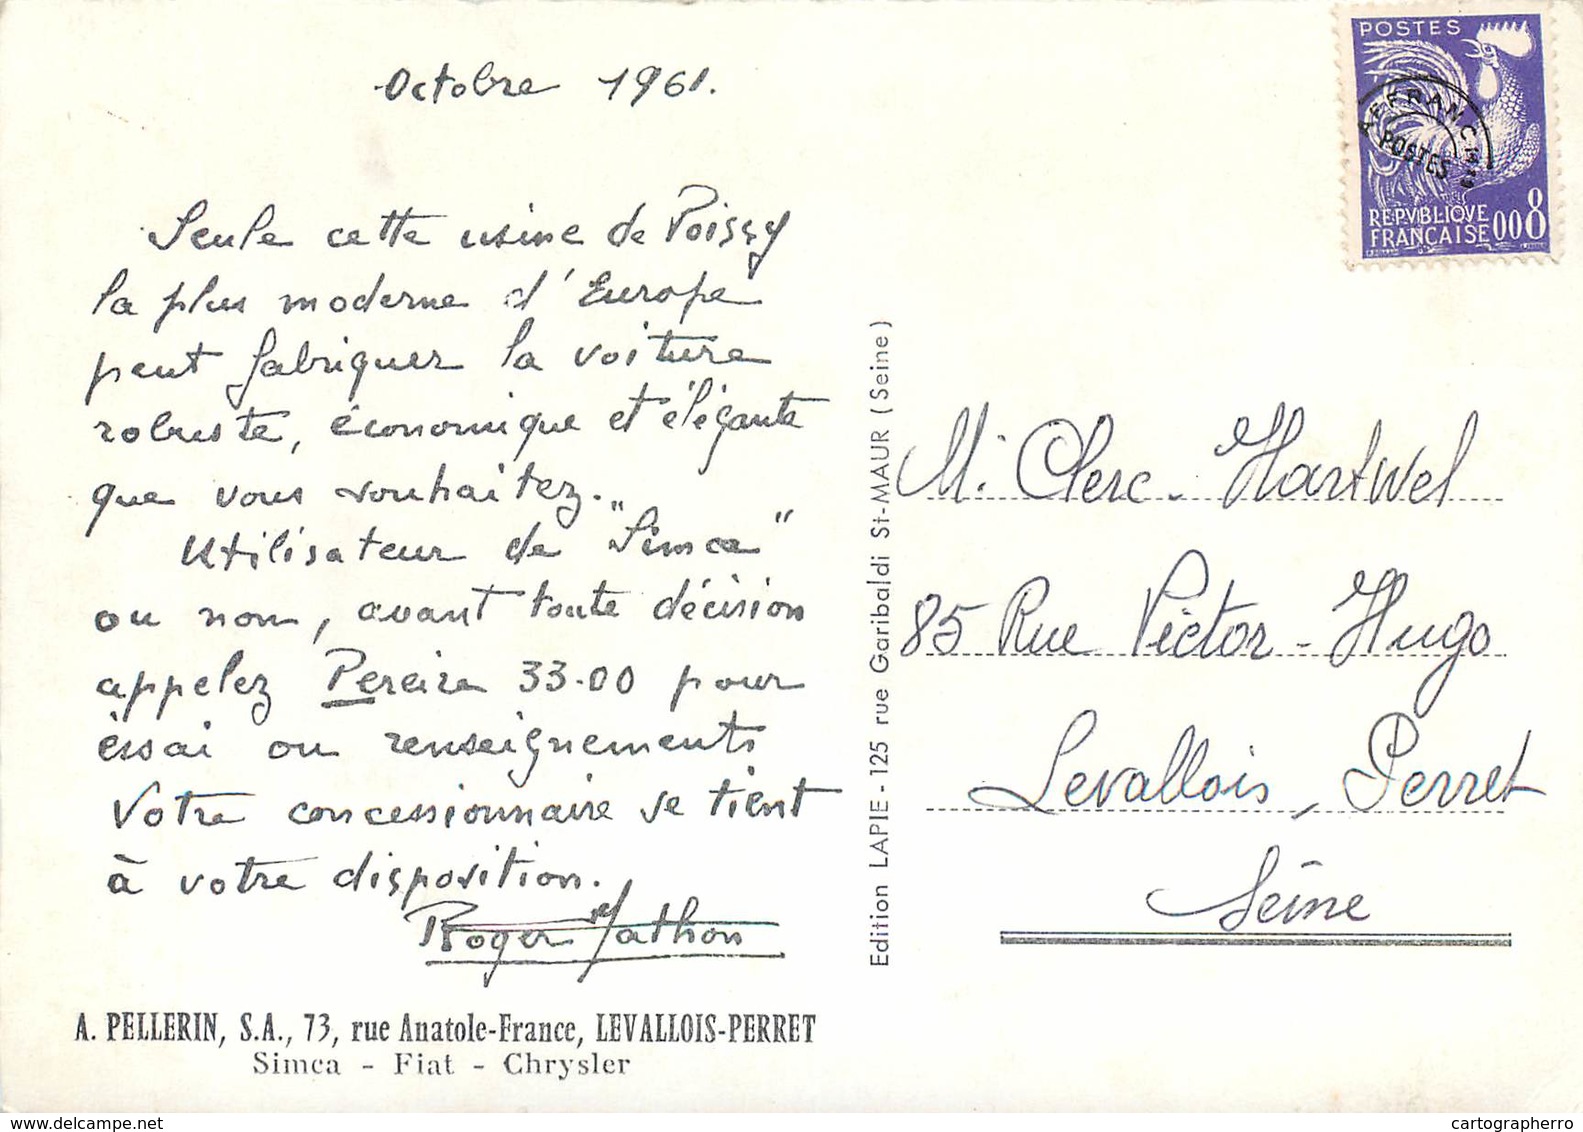 Octobre 1961.
Seule cette usine de Poissy
la plus moderne d'Europe
peut fabriquer la voiture
robuste, économique et élégante
que vous souhaitez.
Utilisateur de "Simca"
ou non, avant toute décision
appelez Pereire 33-00 pour
essai ou renseignements
Votre concessionnaire se tient
à votre disposition.
Roger Mathon
A. PELLERIN, S.A., 73, rue Anatole-France, LEVALLOIS-PERRET
Simca - Fiat - Chrysler
Edition LAPIE - 125 rue Garibaldi St-MAUR (Seine)
POSTES
AFFRANCHTS
POSTES
REPVBLIQVE
FRANÇAISE 008
M. Clerc - Hartwel
85 Rue Victor - Hugo
Levallois, Perret
Seine
www.delcampe.net
cartographerro